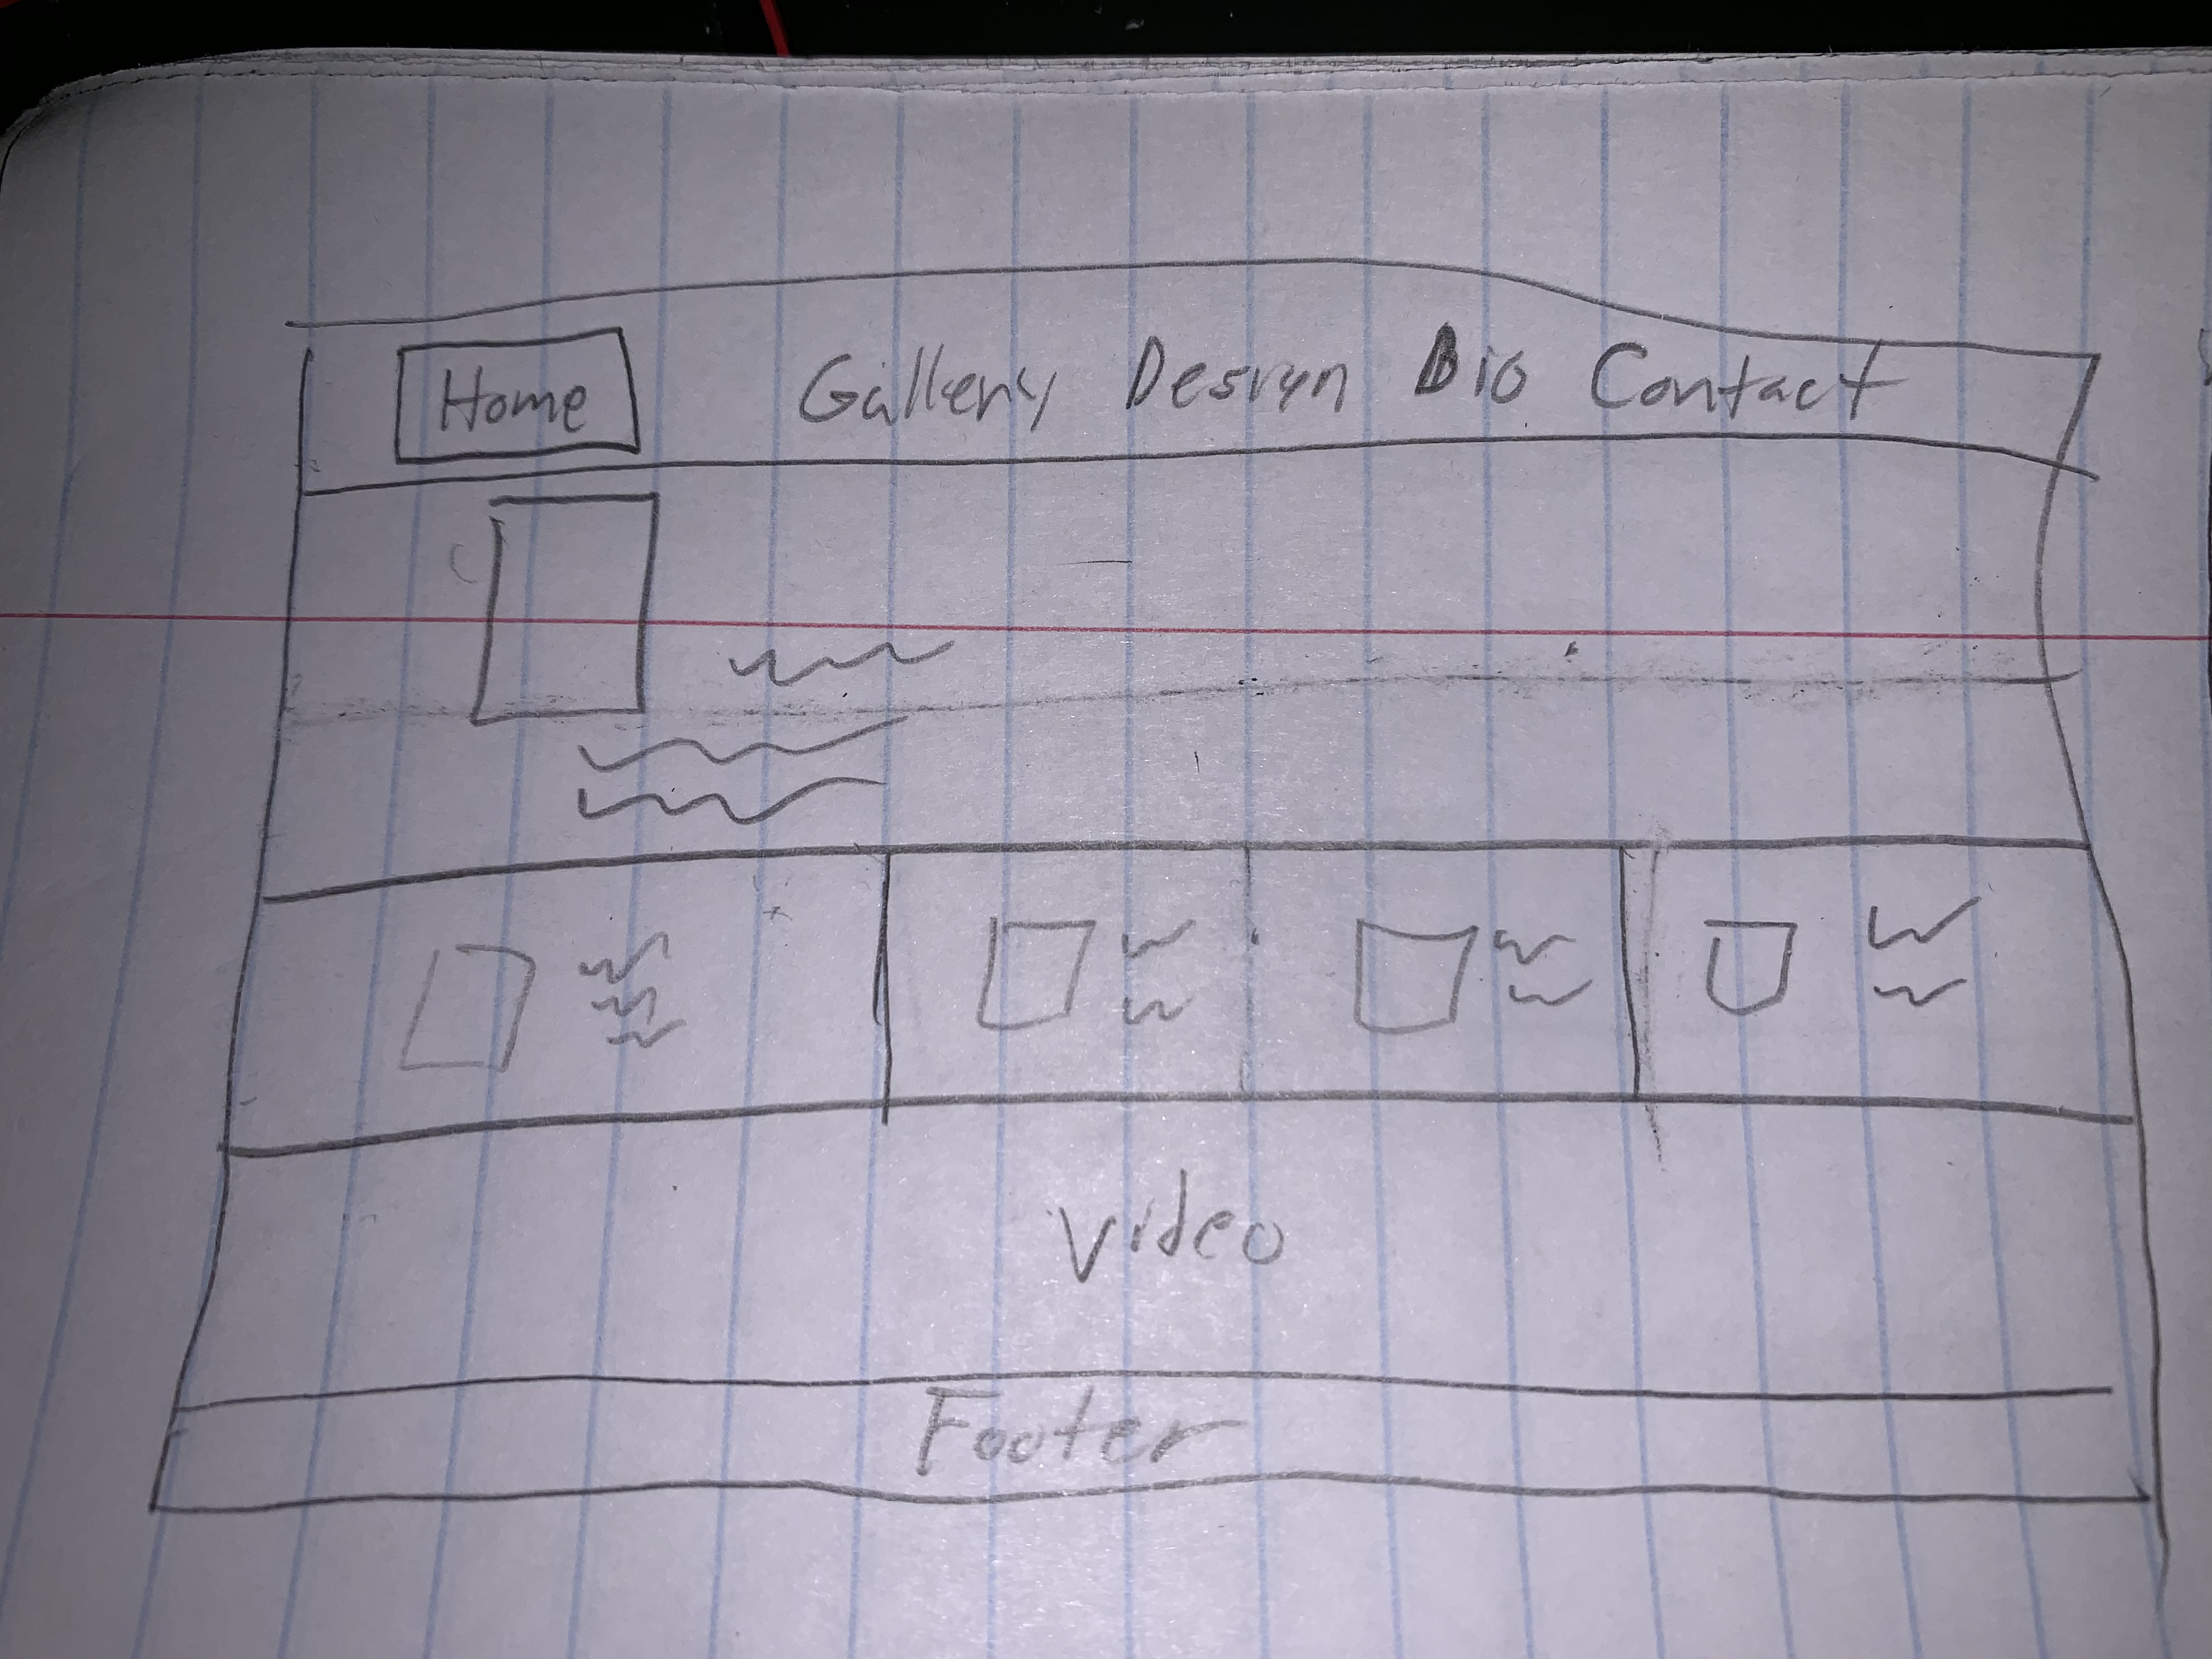 Home Gallery Design Bio Contact
Video
Footer